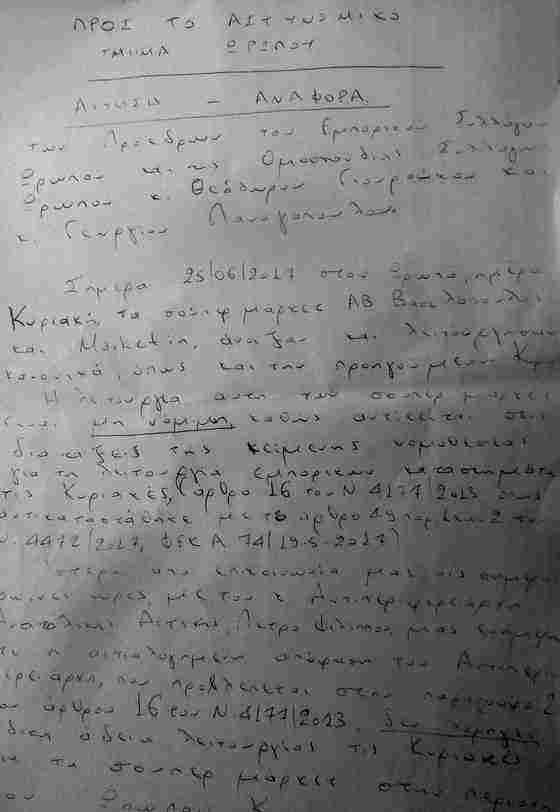 ΠΡΟΣ ΤΟ ΑΣΤΥΝΟΜΙΚΟ
ΤΜΗΜΑ ΩΡΩΠΟΥ
ΑΙΤΗΣΗ - ΑΝΑΦΟΡΑ
των Προέδρων του Εμπορικού Συλλόγου
Ωρωπού και της Ομοσπονδίας Συλλόγων
Ωρωπού κ. Θεόδωρου και
κ. Γεωργίου Παναγόπουλου
Σήμερα 25/06/2017 στον Ωρωπό, ημέρα
Κυριακή, τα σούπερ μάρκετ ΑΒ Βασιλόπουλος
και Market in, άνοιξαν και λειτούργησαν
κανονικά, όπως και την προηγούμενη Κυρ
Η λειτουργία αυτή των σούπερ μάρκετ
είναι μη νόμιμη, καθώς αντίκειται στις
διατάξεις της κείμενης νομοθεσίας
για τη λειτουργία εμπορικών καταστημάτων
τις Κυριακές, (άρθρο 16 του Ν. 4177/2013 όπως
αντικαταστάθηκε με το άρθρο 49 παρ. 2 του
Ν. 4472/2017, ΦΕΚ Α 74/19-5-2017)
Ύστερα από επικοινωνία μας τις σημερι
πρωινές ώρες με τον κ. Αντιπεριφερειάρχη
Ανατολικής Αττικής, Πέτρο Φιλίππου μας ενημερ
ότι η αιτιολογημένη απόφαση του Αντιπερι
φερειάρχη, που προβλέπεται στην παράγραφο 2
του άρθρου 16 του Ν. 4177/2013, δεν χορηγεί
άδεια λειτουργίας τις Κυριακές
για τα σούπερ μάρκετ στην περιοχή
του Ωρωπού. Κ